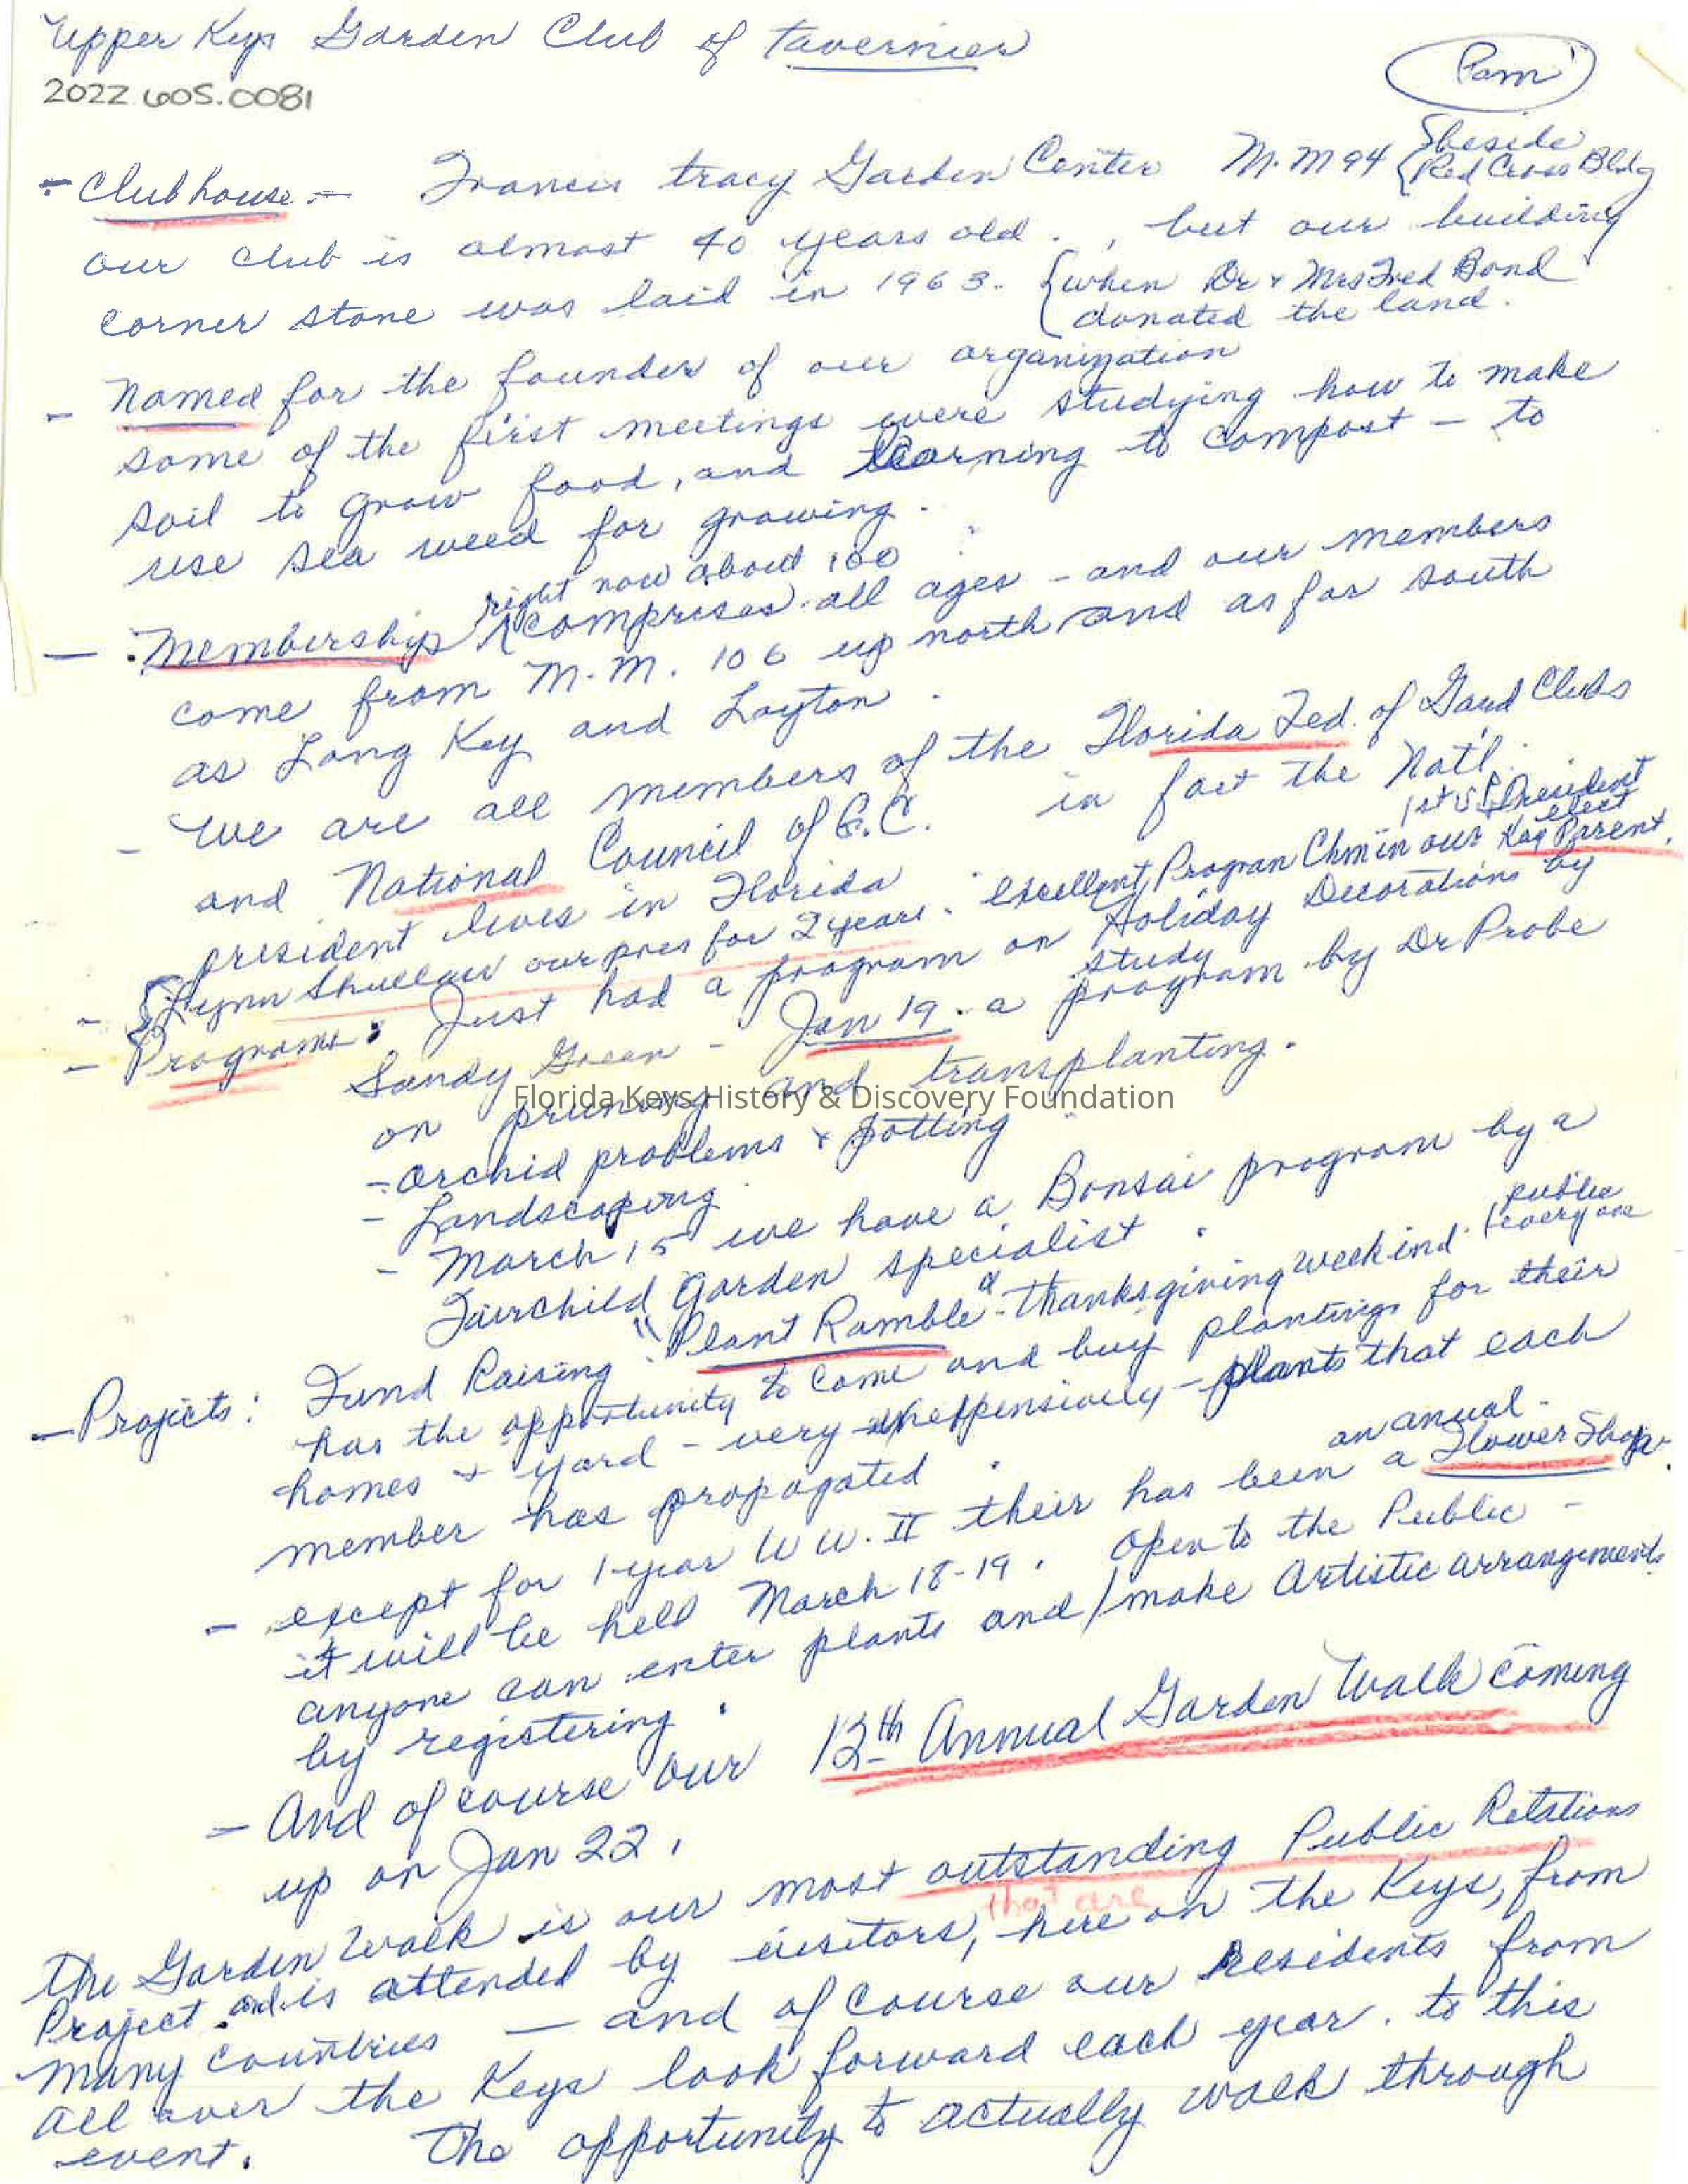 Upper Keys Garden Club of Tavernier
2022.605.0081
Pam
- Clubhouse - Francis Tracy Garden Center M.M 94 {beside Red Cross Bldg
our club is almost 40 years old . , but our building
corner stone was laid in 1963. {when Dr & Mrs Fred Bond
donated the land.
- Named for the founder of our organization
some of the first meetings were studying how to make
soil to grow food, and learning to compost - to
use sea weed for growing.
right now about 100
- Membership comprises all ages - and our members
come from M.M. 106 up north and as far south
as Long Key and Layton.
- We are all members of the Florida Fed. of Gard Clubs
and National Council of G.C. in fact the Nat'l.
president lives in Florida
1st V President elect
- {Lynn our pres for 2 years. excellent Program Chm in our Kay Parent.
- Programs: Just had a program on Holiday Decorations by
Sandy Green - Jan 19. a study program by Dr Probe
on pruning and transplanting.
Florida Keys History & Discovery Foundation
- Orchid problems & potting
- Landscaping
- March 15 we have a Bonsai program by a
Fairchild Garden specialist.
- Projects: Fund Raising "Plant Ramble" - Thanksgiving weekind. {public everyone
has the opportunity to come and buy plantings for their
homes & yard - very inexpensively - plants that each
member has propagated.
an anual -
- except for 1-year W W. II their has been a Flower Show.
it will be held March 18-19. Open to the Public -
anyone can enter plants and/make Artistic arrangements
by registering.
- And of course our 13th Annual Garden Walk coming
up on Jan 22.
The Garden Walk is our most outstanding Public Relations
that are
Project and is attended by visitors, here on the Keys, from
many countries - and of course our residents from
all over the Keys look forward each year. to this
event. The opportunity to actually walk through